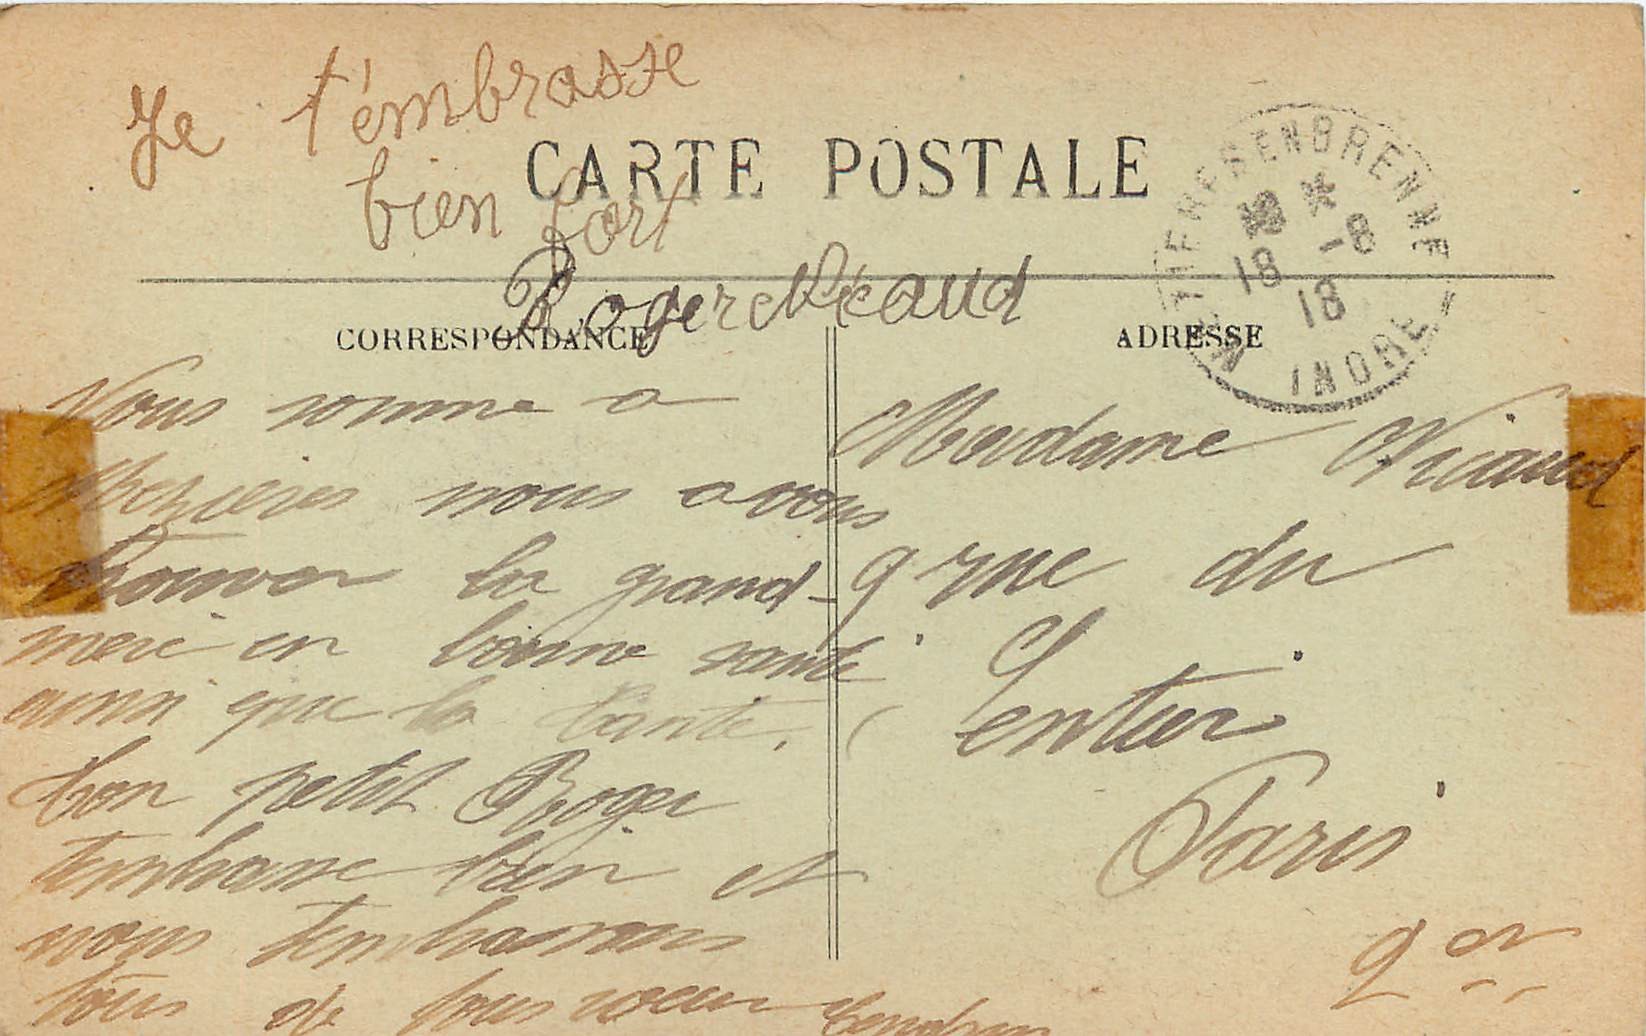 Je t'émbrasse
bien fort
CARTE POSTALE
Roger Nicaud
CORRESPONDANCE
Nous somme a
Mezieres nous avons
trouver la grand-
mere en bonne santé
ainsi que la tante.
ton petit Roger
t'embrasse bien et
nous t'embrassons
tous de tous coeur
ADRESSE
MEZIERES EN BRENNE
18 -8
18
INDRE
Madame Nicaud
9 rue du
Sentier
Paris
2 er